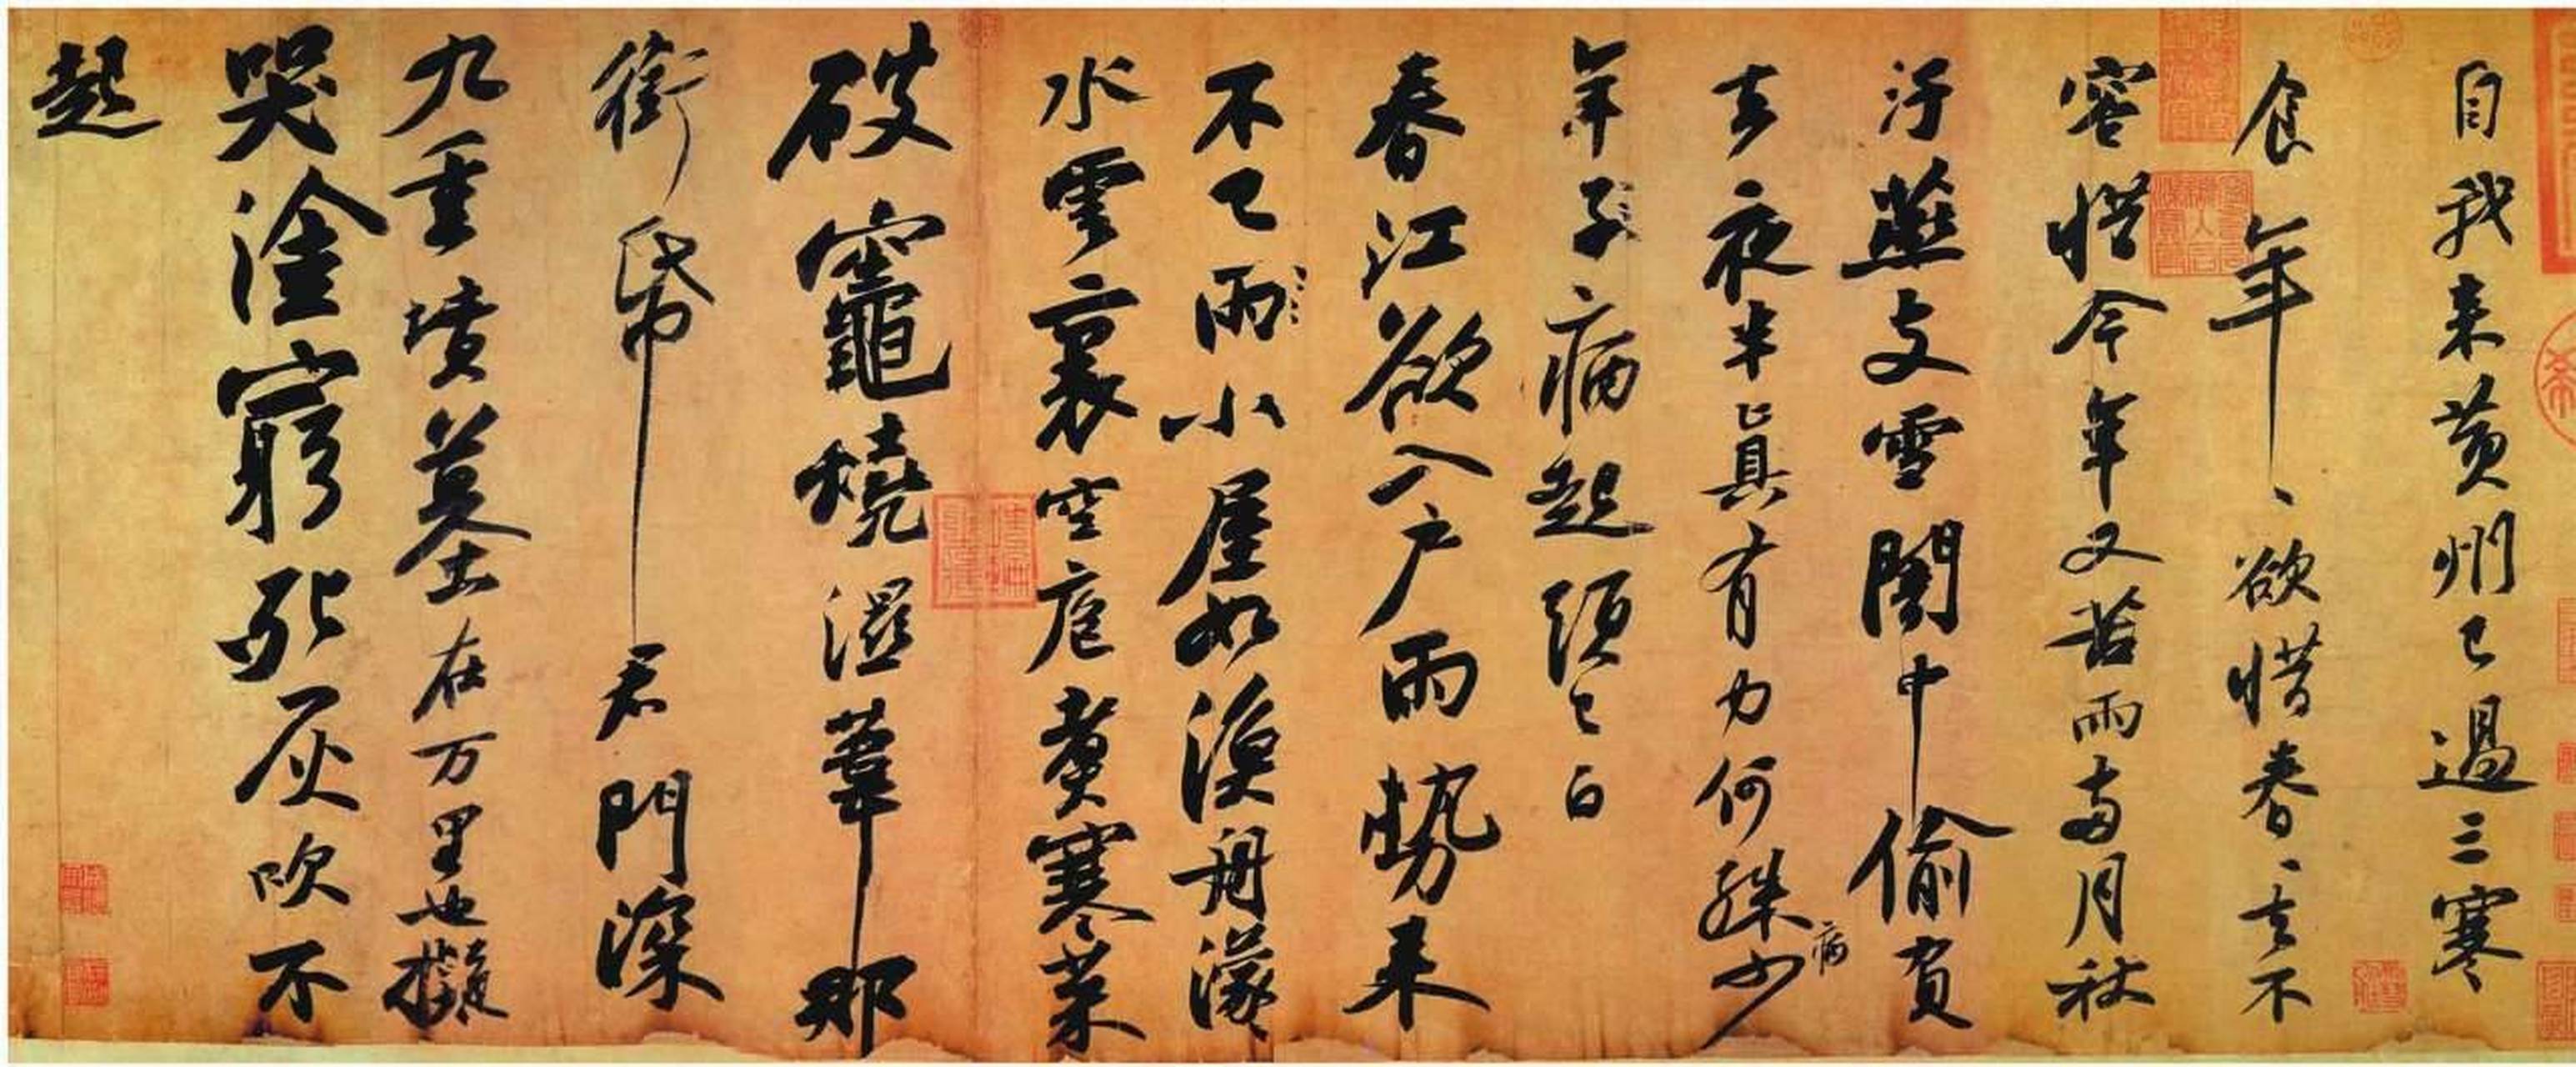 自我来黄州已過三寒
食年、欲惜春、去不
容惜今年又苦雨兩月秋
汙燕支雪闇中偷負
去夜半真有力何殊少病
年子病起頭已白
春江欲入户雨勢来
不已雨小屋如漁舟濛
水雲裏空庖煑寒菜
破竈燒濕葦那
銜帋君門深
九重墳墓在万里也擬
哭塗窮死灰吹不
起